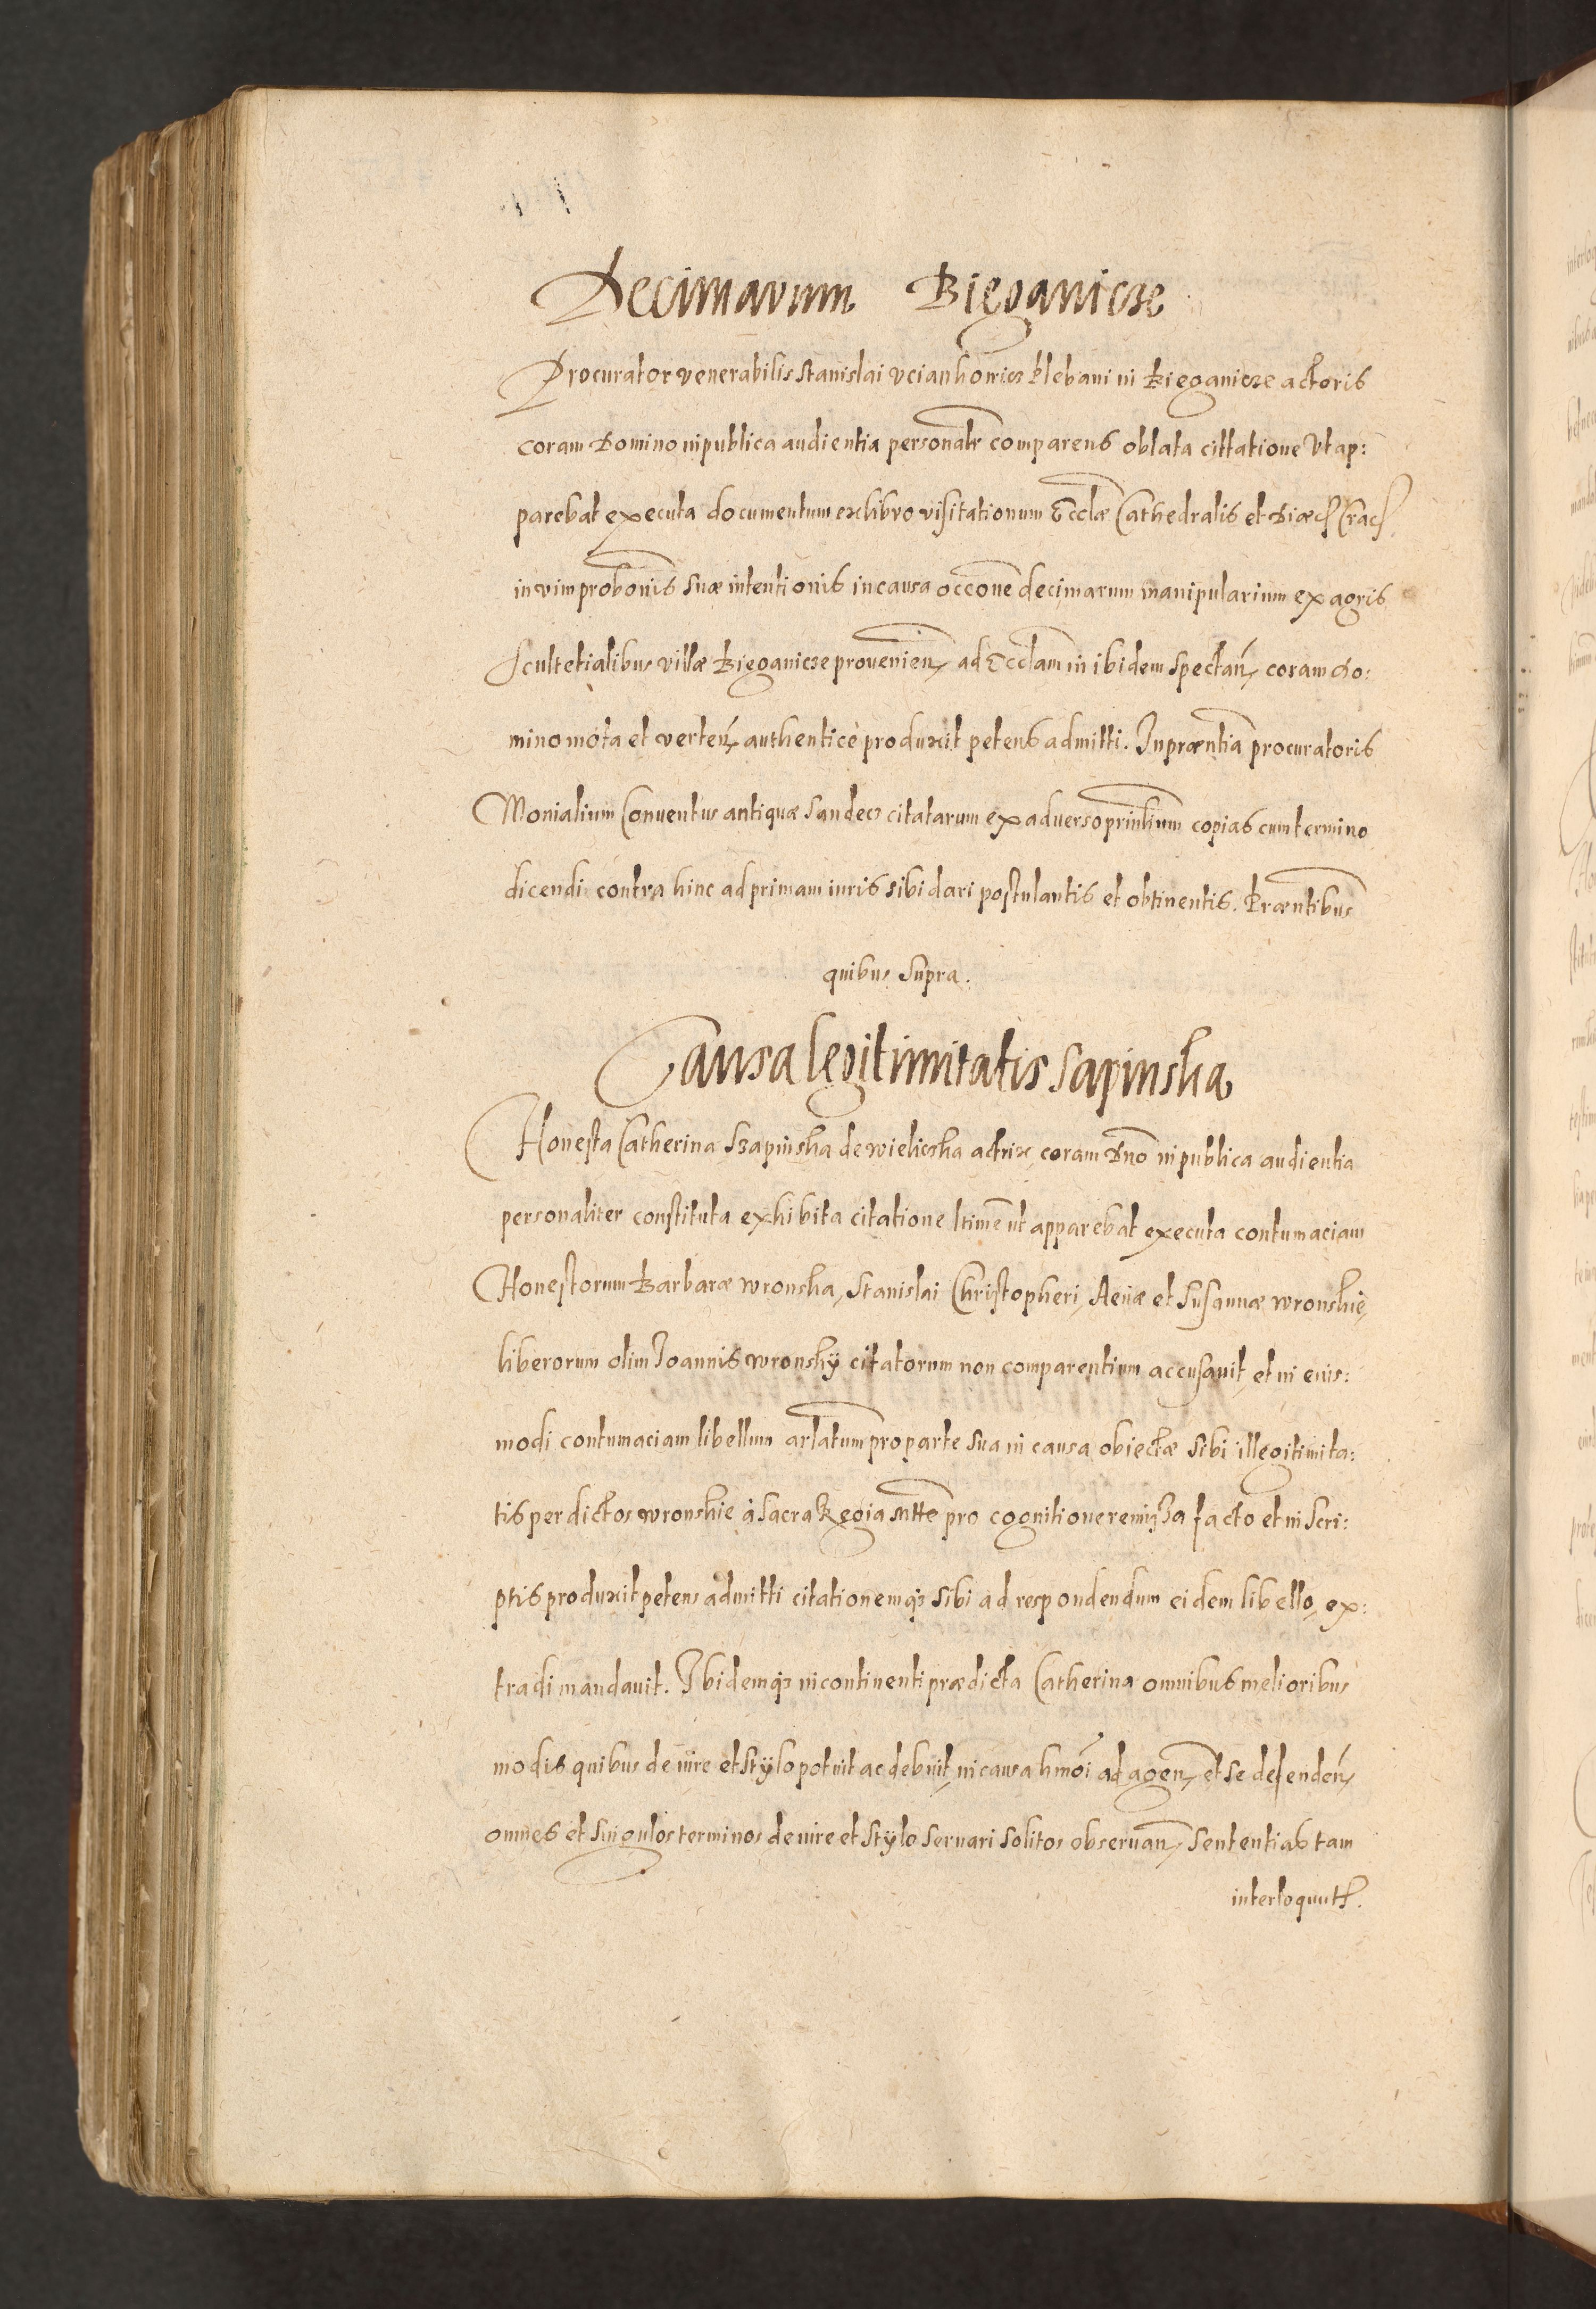 Decimarum Bieganicze
Procurator venerabilis Stanislai Vciankowicz Plebani in Bieganicze actoris
coram Domino in publica audientia personalr comparens oblata cittatione Vt ap:
parebat executa documentum ex libro visitationum Ecclæ Cathedralis et Diæc Crac
in vim probonis suæ intentionis in causa occone decimarum manipularium ex agris
Scultetialibus villæ Bieganicze provenien, ad Ecclam in ibidem spectan, coram do:
mino mota et verten, authenticè produxit petens admitti. In præntia procuratoris
Monialium Conuentus antiquæ Sandecz citatarum ex aduerso prinlium copias cum termino
dicendi contra hinc ad primam iuris sibi dari postulantis et obtinentis. Præntibus
quibus supra.
Causa legitimitatis Sapinska
Honesta Catherina Szapinska de Wieliczka actrix, coram Dno in publica audientia
personaliter constituta exhibita citatione ltime ut apparebat executa contumaciam
Honestorum Barbaræ Wronska, Stanislai Christopheri, et Susannæ Wronskie,
liberorum olim Joannis Wronskÿ citatorum non comparentium accusauit, et in eius:
modi contumaciam libellum arlatum pro parte sua in causa obiectæ sibi illegitimita:
tis per dictos Wronskie à Sacra Regia Mtte pro cognitione remissa facto et in scri:
ptis produxit petens admitti citationemq3 sibi ad respondendum eidem libello, ex:
tradi mandauit. Ibidemq3 incontinenti prædicta Catherina omnibus melioribus
modis quibus de iure et stÿlo potuit ac debuit, in causa hmoi ad agen, et se defenden,
omnes et singulos terminos de iure et stÿlo seruari solitos obseruan, sententias tam
interloquut.